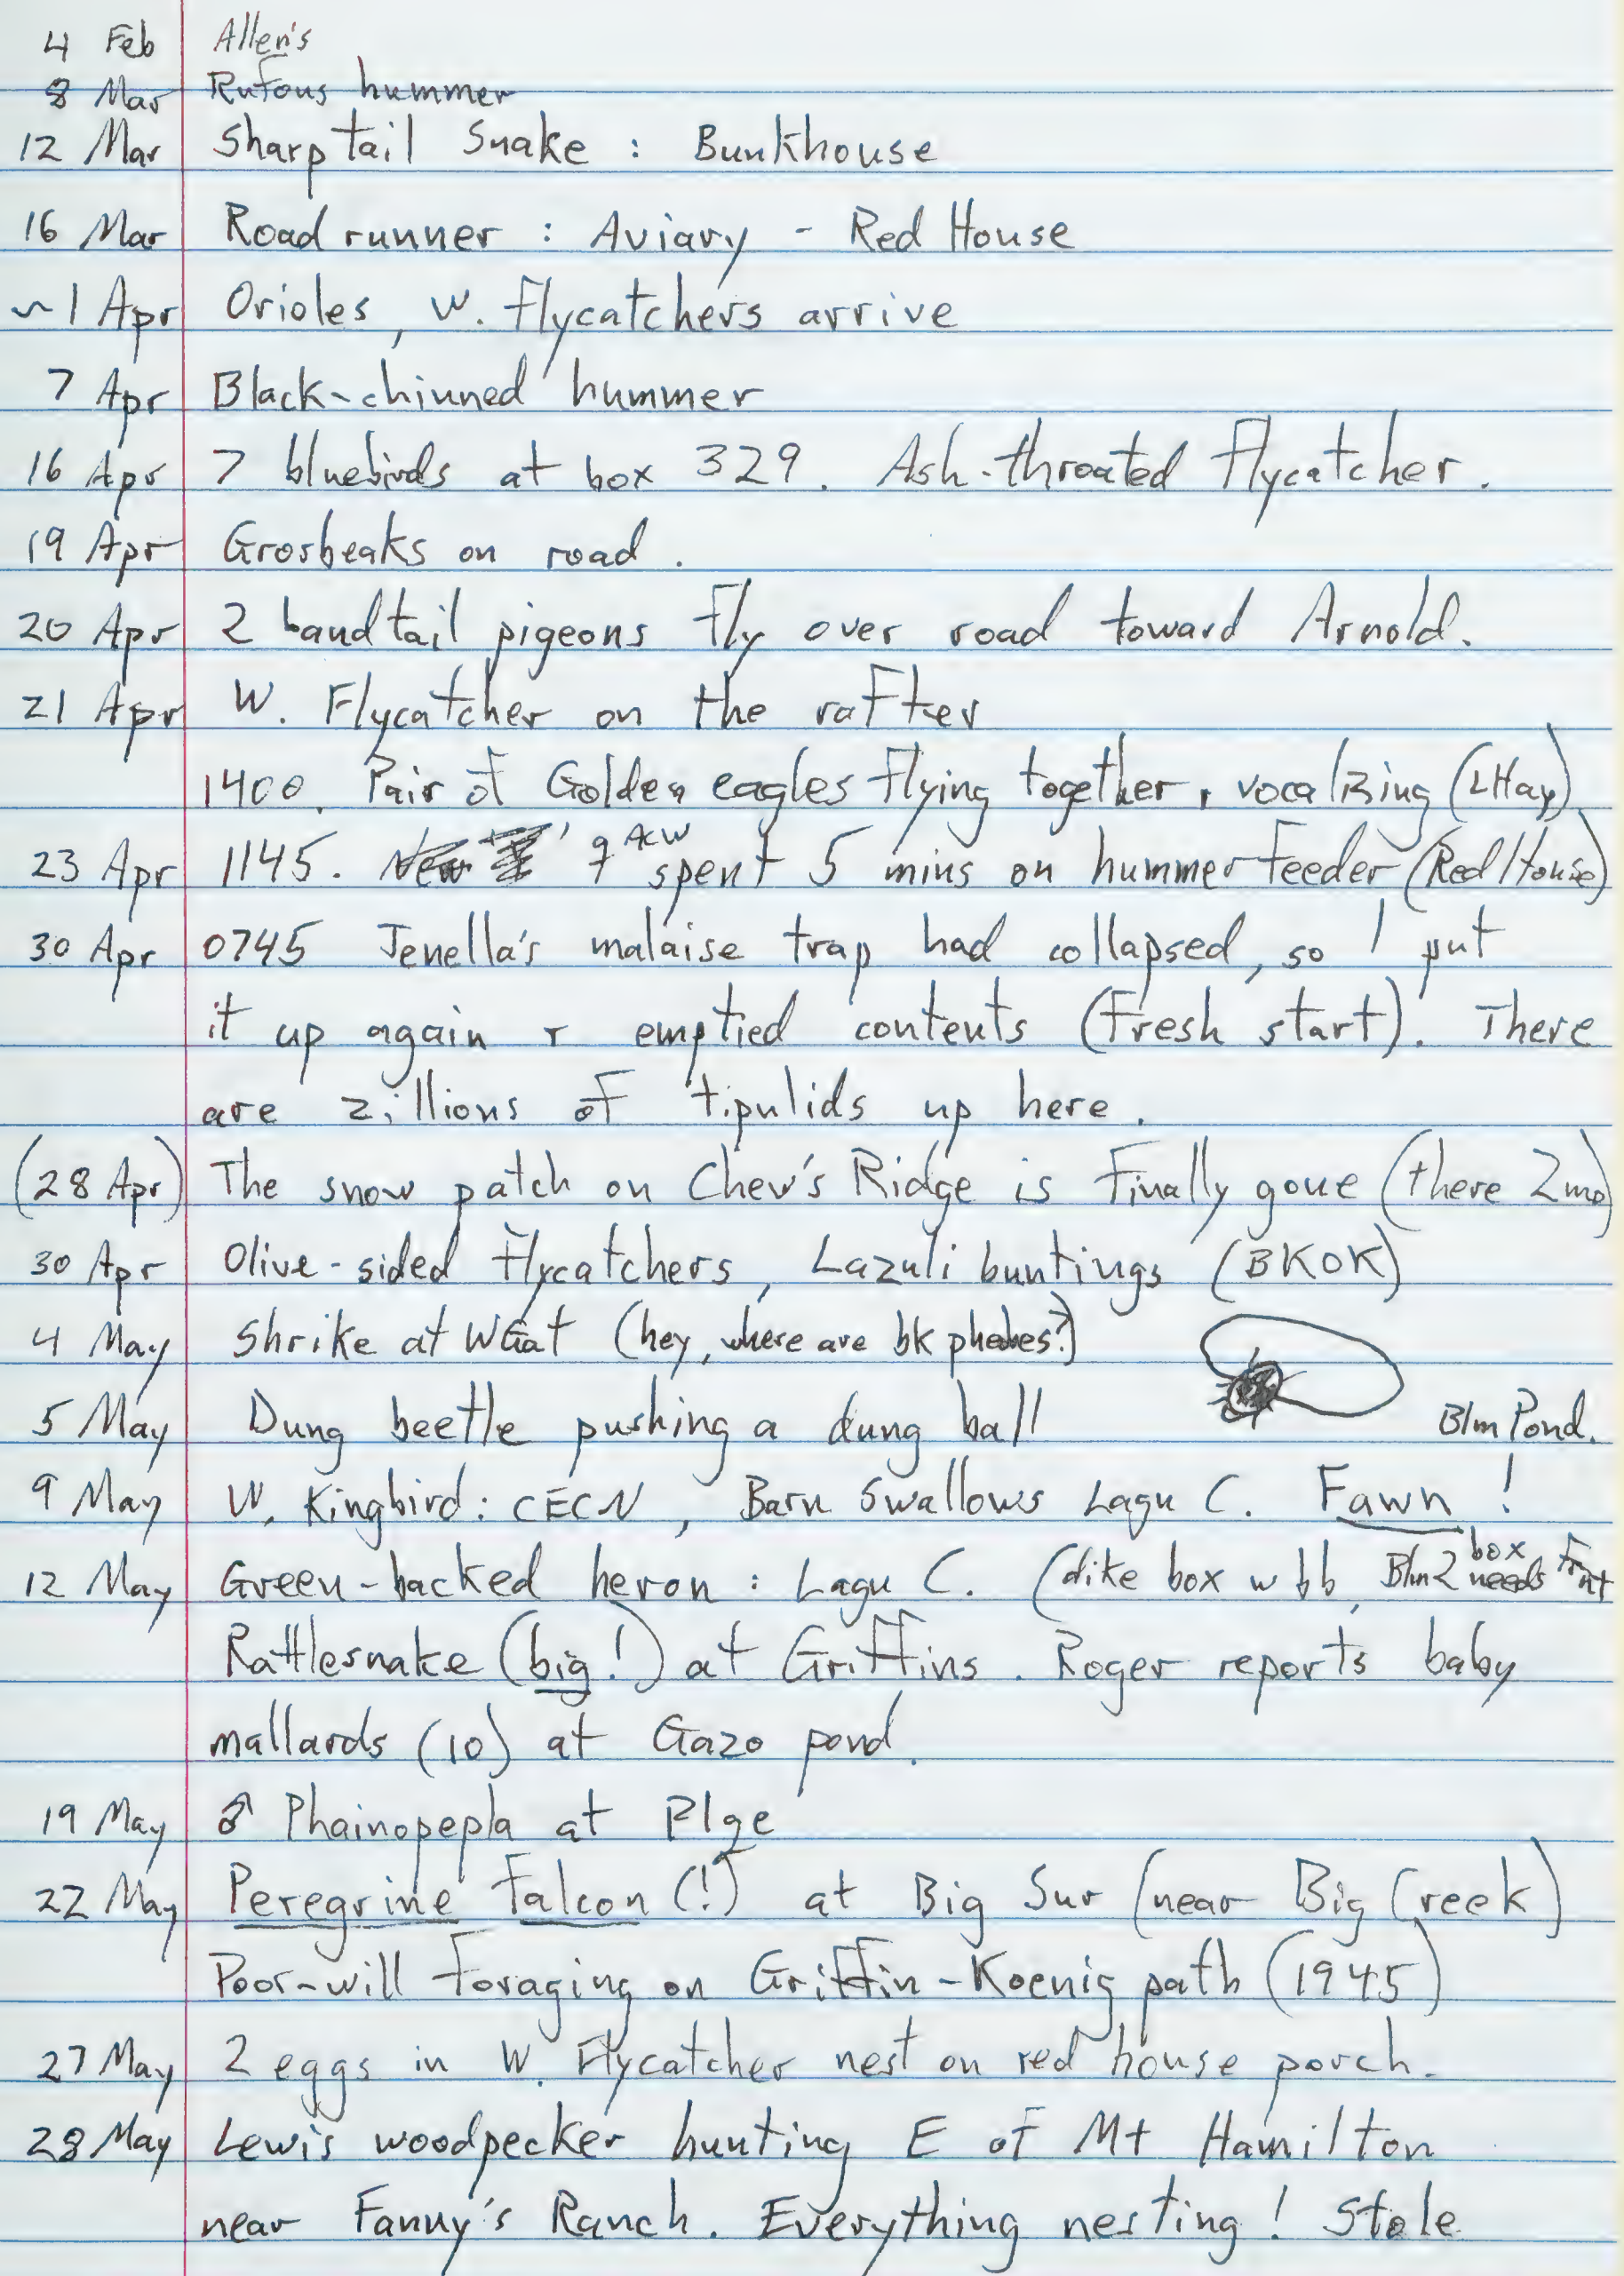 4 Feb Allen's
8 Mar Rufous hummer
12 Mar Sharptail Snake : Bunkhouse
16 Mar Roadrunner : Aviary - Red House
~1 Apr Orioles, W. flycatchers arrive
7 Apr Black-chinned hummer
16 Apr 7 bluebirds at box 329. Ash-throated Flycatcher.
19 Apr Grosbeaks on road.
20 Apr 2 bandtail pigeons fly over road toward Arnold.
21 Apr W. Flycatcher on the rafter
1400. Pair of Golden eagles flying together, vocalizing (LHay)
23 Apr 1145. ♀ ACW spent 5 mins on hummer feeder (Red House)
30 Apr 0745 Jenella's malaise trap had collapsed, so I put
it up again + emptied contents (fresh start). There
are zillions of tipulids up here.
(28 Apr) The snow patch on Chew's Ridge is finally gone (there 2mo)
30 Apr Olive-sided flycatchers, Lazuli buntings (BKOK)
4 May Shrike at WGat (hey, where are bk phebes?)
5 May Dung beetle pushing a dung ball Blm Pond.
9 May W. Kingbird: CECN, Barn Swallows Lagu C. Fawn!
12 May Green-backed heron : Lagu C. (dike box w bb, Blm2 box needs front
Rattlesnake (big!) at Griffins. Roger reports baby
mallards (10) at Gazo pond.
19 May ♂ Phainopepla at Plge
22 May Peregrine Falcon (!) at Big Sur (near Big Creek)
Poor-will foraging on Griffin-Koenig path (1945)
27 May 2 eggs in W. Flycatcher nest on red house porch.
28 May Lewis woodpecker hunting E of Mt Hamilton
near Fanny's Ranch. Everything nesting! Stole